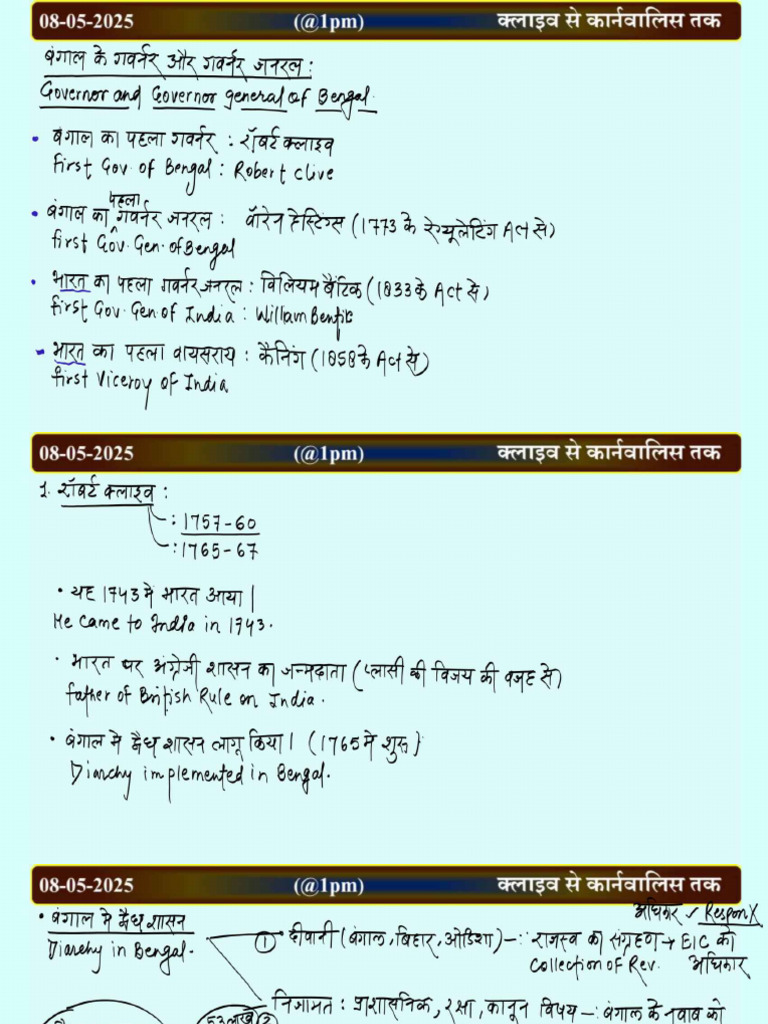 08-05-2025 (@1pm) क्लाइव से कार्नवालिस तक
बंगाल के गवर्नर और गवर्नर जनरल :
Governor and Governor general of Bengal.
• बंगाल का पहला गवर्नर : रॉबर्ट क्लाइव
first Gov. of Bengal : Robert Clive
पहला
• बंगाल का गवर्नर जनरल : वॉरेन हेस्टिंग्स (1773 के रेग्यूलेटिंग Act से)
first Gov. Gen. of Bengal
• भारत का पहला गवर्नर जनरल : विलियम बैंटिक (1833 के Act से)
first Gov. Gen of India : William
• भारत का पहला वायसराय : कैनिंग (1858 के Act से)
first Viceroy of India
08-05-2025 (@1pm) क्लाइव से कार्नवालिस तक
1. रॉबर्ट क्लाइव :
: 1757-60
: 1765-67
• यह 1743 मे भारत आया |
He came to India in 1743.
• भारत पर अंग्रेजी शासन का जन्मदाता (प्लासी की विजय की वजह से)
father of British Rule on India.
• बंगाल मे द्वैध शासन लागू किया | (1765 मे शुरू)
Diarchy implemented in Bengal.
08-05-2025 (@1pm) क्लाइव से कार्नवालिस तक
अधिकार ✓ Respon X
• बंगाल मे द्वैध शासन
① दीवानी (बंगाल, बिहार, ओडिशा) –: राजस्व का संग्रहण → EIC को
Diarchy in Bengal.
Collection of Rev. अधिकार
निजामत : प्रशासनिक, रक्षा, कानून विषय –: बंगाल के नवाब को
53 लाख ②